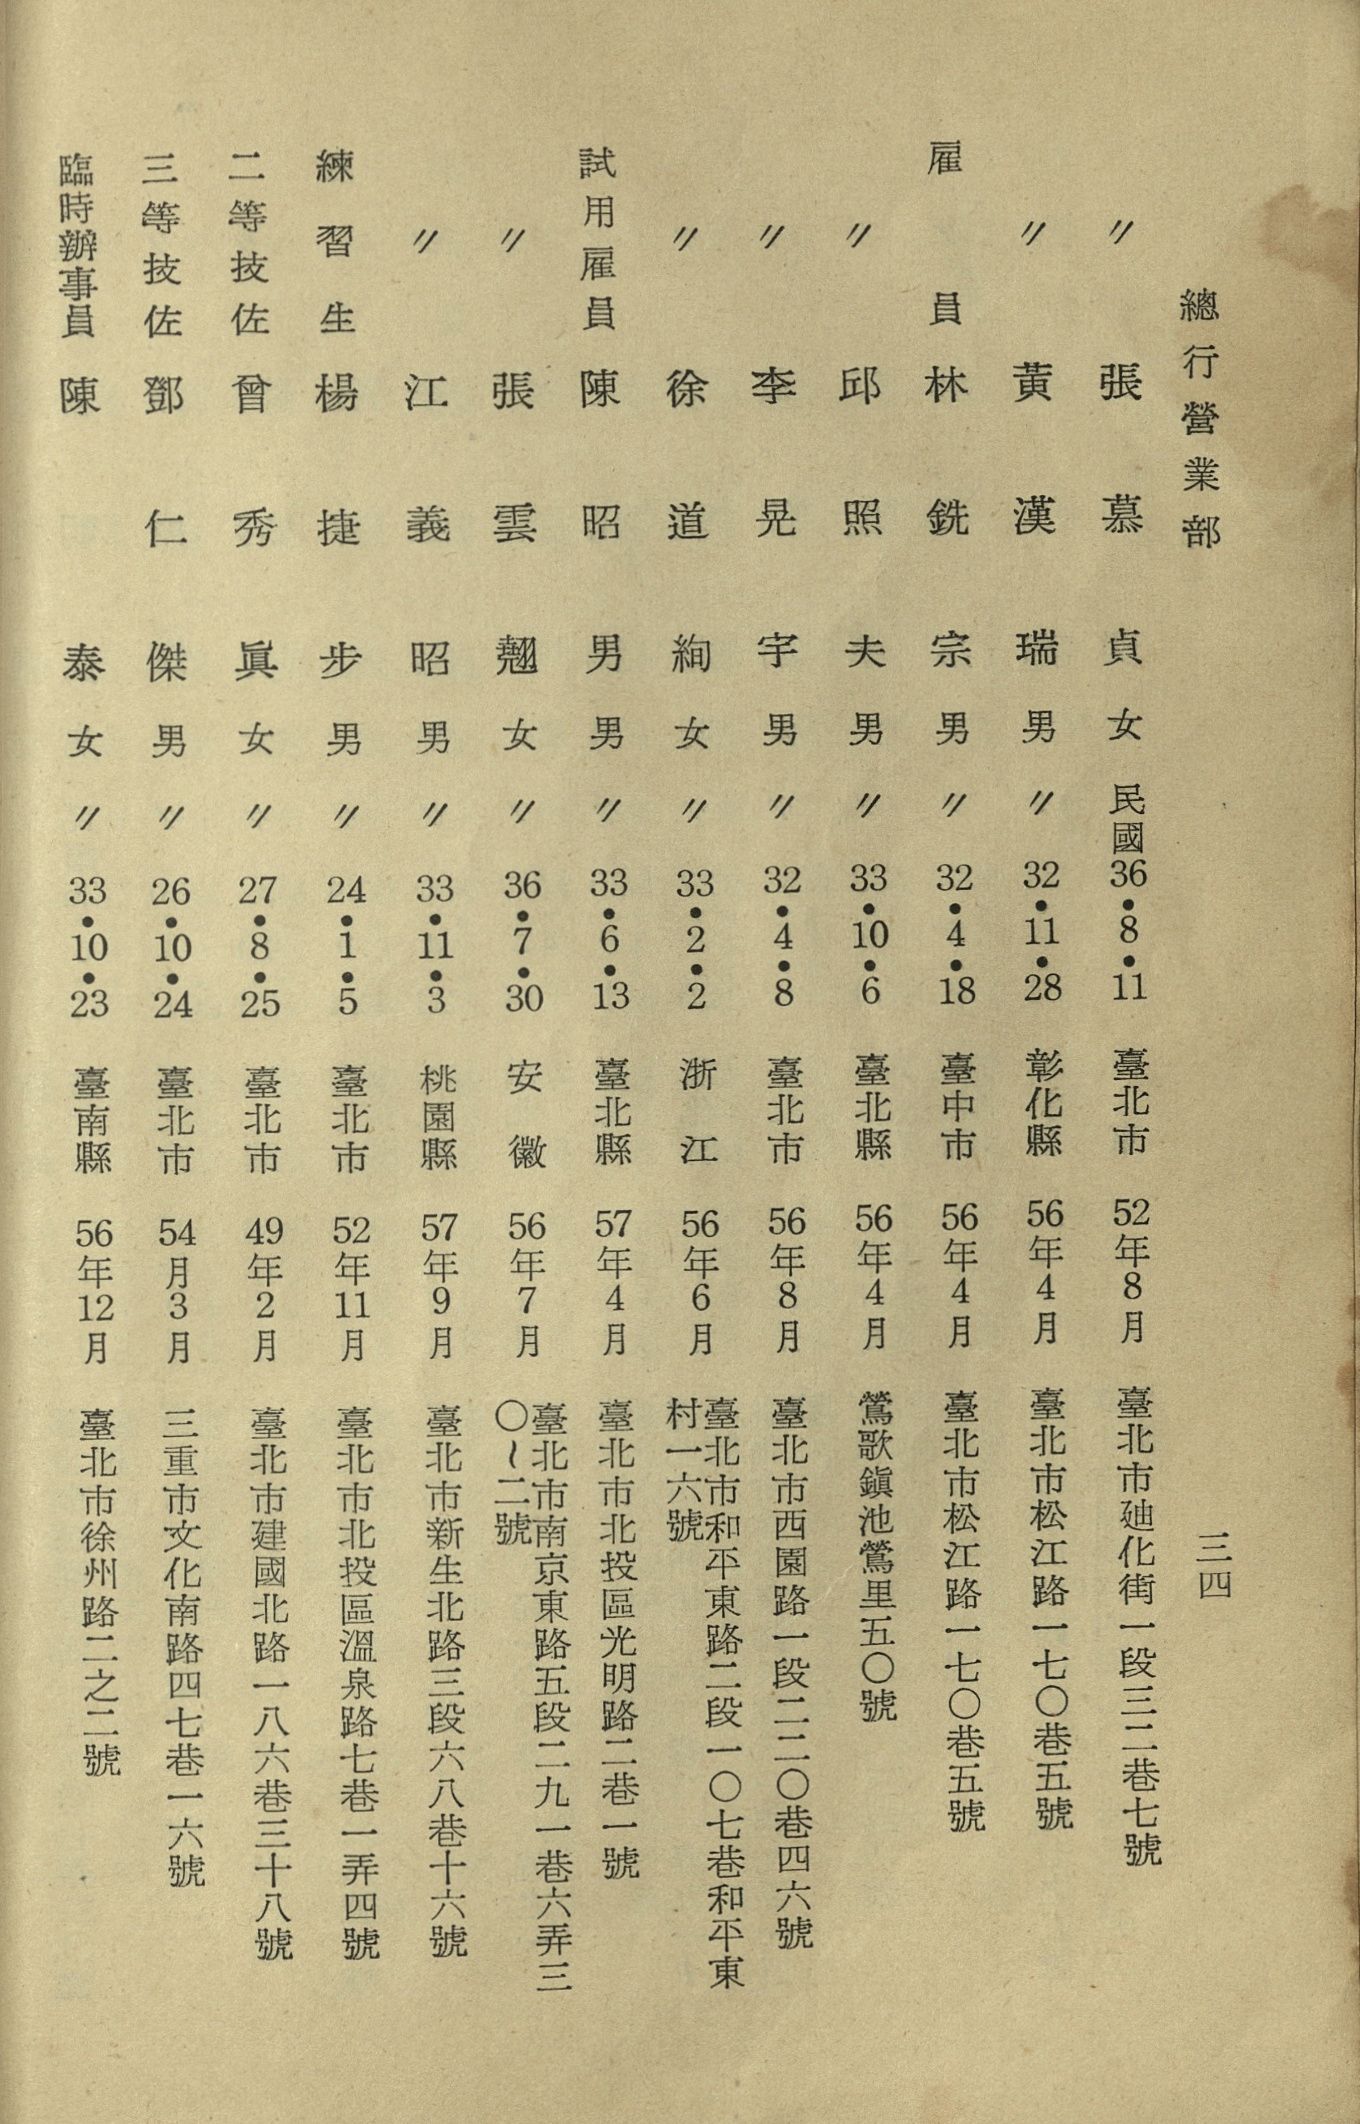 總行營業部
三四
〃 張慕貞 女 民國36•8•11 臺北市 52年8月 臺北市廸化街一段三二巷七號
〃 黃漢瑞 男 〃 32•11•28 彰化縣 56年4月 臺北市松江路一七〇巷五號
雇員 林銑宗 男 〃 32•4•18 臺中市 56年4月 臺北市松江路一七〇巷五號
〃 邱照夫 男 〃 33•10•6 臺北縣 56年4月 鶯歌鎭池鶯里五〇號
〃 李晃宇 男 〃 32•4•8 臺北市 56年8月 臺北市西園路一段二二〇巷四六號
〃 徐道絢 女 〃 33•2•2 浙江 56年6月 臺北市和平東路二段一〇七巷和平東
村一六號
試用雇員 陳昭男 男 〃 33•6•13 臺北縣 57年4月 臺北市北投區光明路二巷一號
〃 張雲翹 女 〃 36•7•30 安徽 56年7月 臺北市南京東路五段二九一巷六弄三
〇~二號
〃 江義昭 男 〃 33•11•3 桃園縣 57年9月 臺北市新生北路三段六八巷十六號
練習生 楊捷步 男 〃 24•1•5 臺北市 52年11月 臺北市北投區溫泉路七巷一弄四號
二等技佐 曾秀眞 女 〃 27•8•25 臺北市 49年2月 臺北市建國北路一八六巷三十八號
三等技佐 鄧仁傑 男 〃 26•10•24 臺北市 54月3月 三重市文化南路四七巷一六號
臨時辦事員 陳泰 女 〃 33•10•23 臺南縣 56年12月 臺北市徐州路二之二號